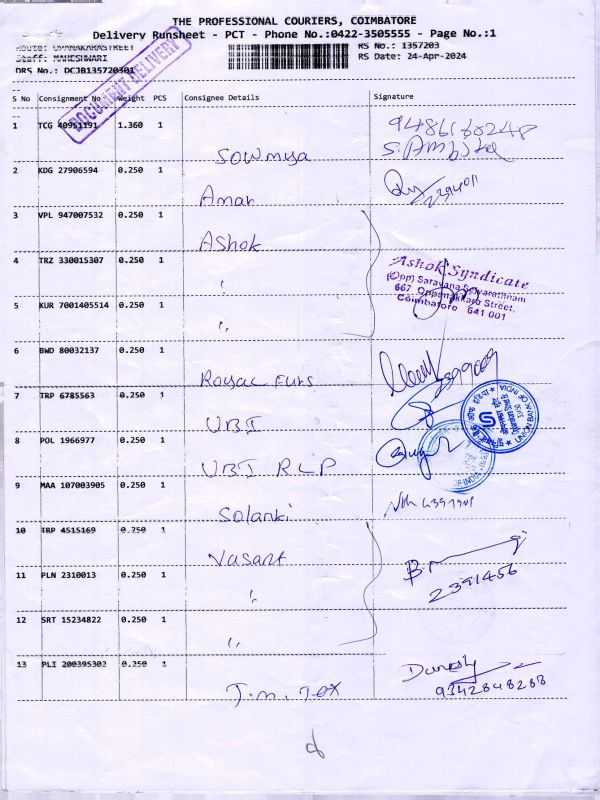 THE PROFESSIONAL COURIERS, COIMBATORE
Delivery Runsheet - PCT - Phone No.:0422-3505555 - Page No.:1
Route: OPANAKARASTREET RS No.: 1357203
Staff: MAHESHWARI RS Date: 24-Apr-2024
DRS No.: DCJB135720301
DOCUMENT DELIVERY
S No Consignment No Weight PCS Consignee Details Signature
1 TCG 40951191 1.360 1 Sowmiya 9486168248
2 KDG 27906594 0.250 1 Amar
3 VPL 947007532 0.250 1 Ashok
4 TRZ 330015307 0.250 1 "
Ashok Syndicate
(Opp) Saravana Selvarathnam
667 Oppanakkara Street,
Coimbatore 641 001
5 KUR 7001405514 0.250 1 "
6 BWD 80032137 0.250 1 Royal Furs
7 TRP 6785563 0.250 1 UBI
UNION BANK OF INDIA
8 POL 1966977 0.250 1 UBI RLP
9 MAA 107003905 0.250 1 Solanki
10 TRP 4515169 0.250 1 Vasant
11 PLN 2310013 0.250 1 " 2391456
12 SRT 15234822 0.250 1 "
13 PLI 200395302 0.250 1 J.M. Tex Danesh
9342848288